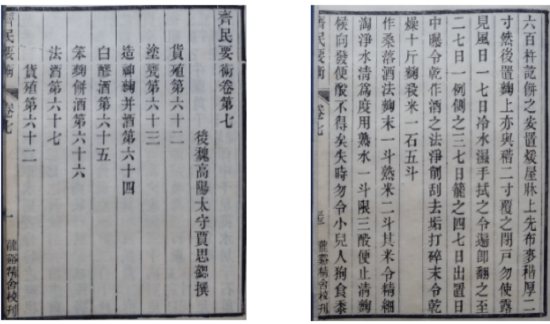 齊民要術卷第七
後魏高陽太守賈思勰撰
貨殖第六十二
塗甕第六十三
造神麴并酒第六十四
白醪酒第六十五
笨麴餅酒第六十六
法酒第六十七
貨殖第六十二
齊民要術 卷七 一 龍谿精舍校刊
六百杵訖餅之安置煖屋牀上先布麥稭厚二
寸然後置麴上亦與稭二寸覆之閉戶勿使露
見風日一七日冷水濕手拭之令遍即翻之至
二七日一例側之三七日籠之四七日出置日
中曝令乾作酒之法淨削刮去垢打碎末令乾
燥十斤麴殺米一石五斗
作桑落酒法麴末一斗熟米二斗其米令精細
淘淨水清爲度用熟水一斗限三酘便止漬麴
候向發便酘不得矣失時勿令小兒人狗食黍
齊民要術 卷七 龍谿精舍校刊